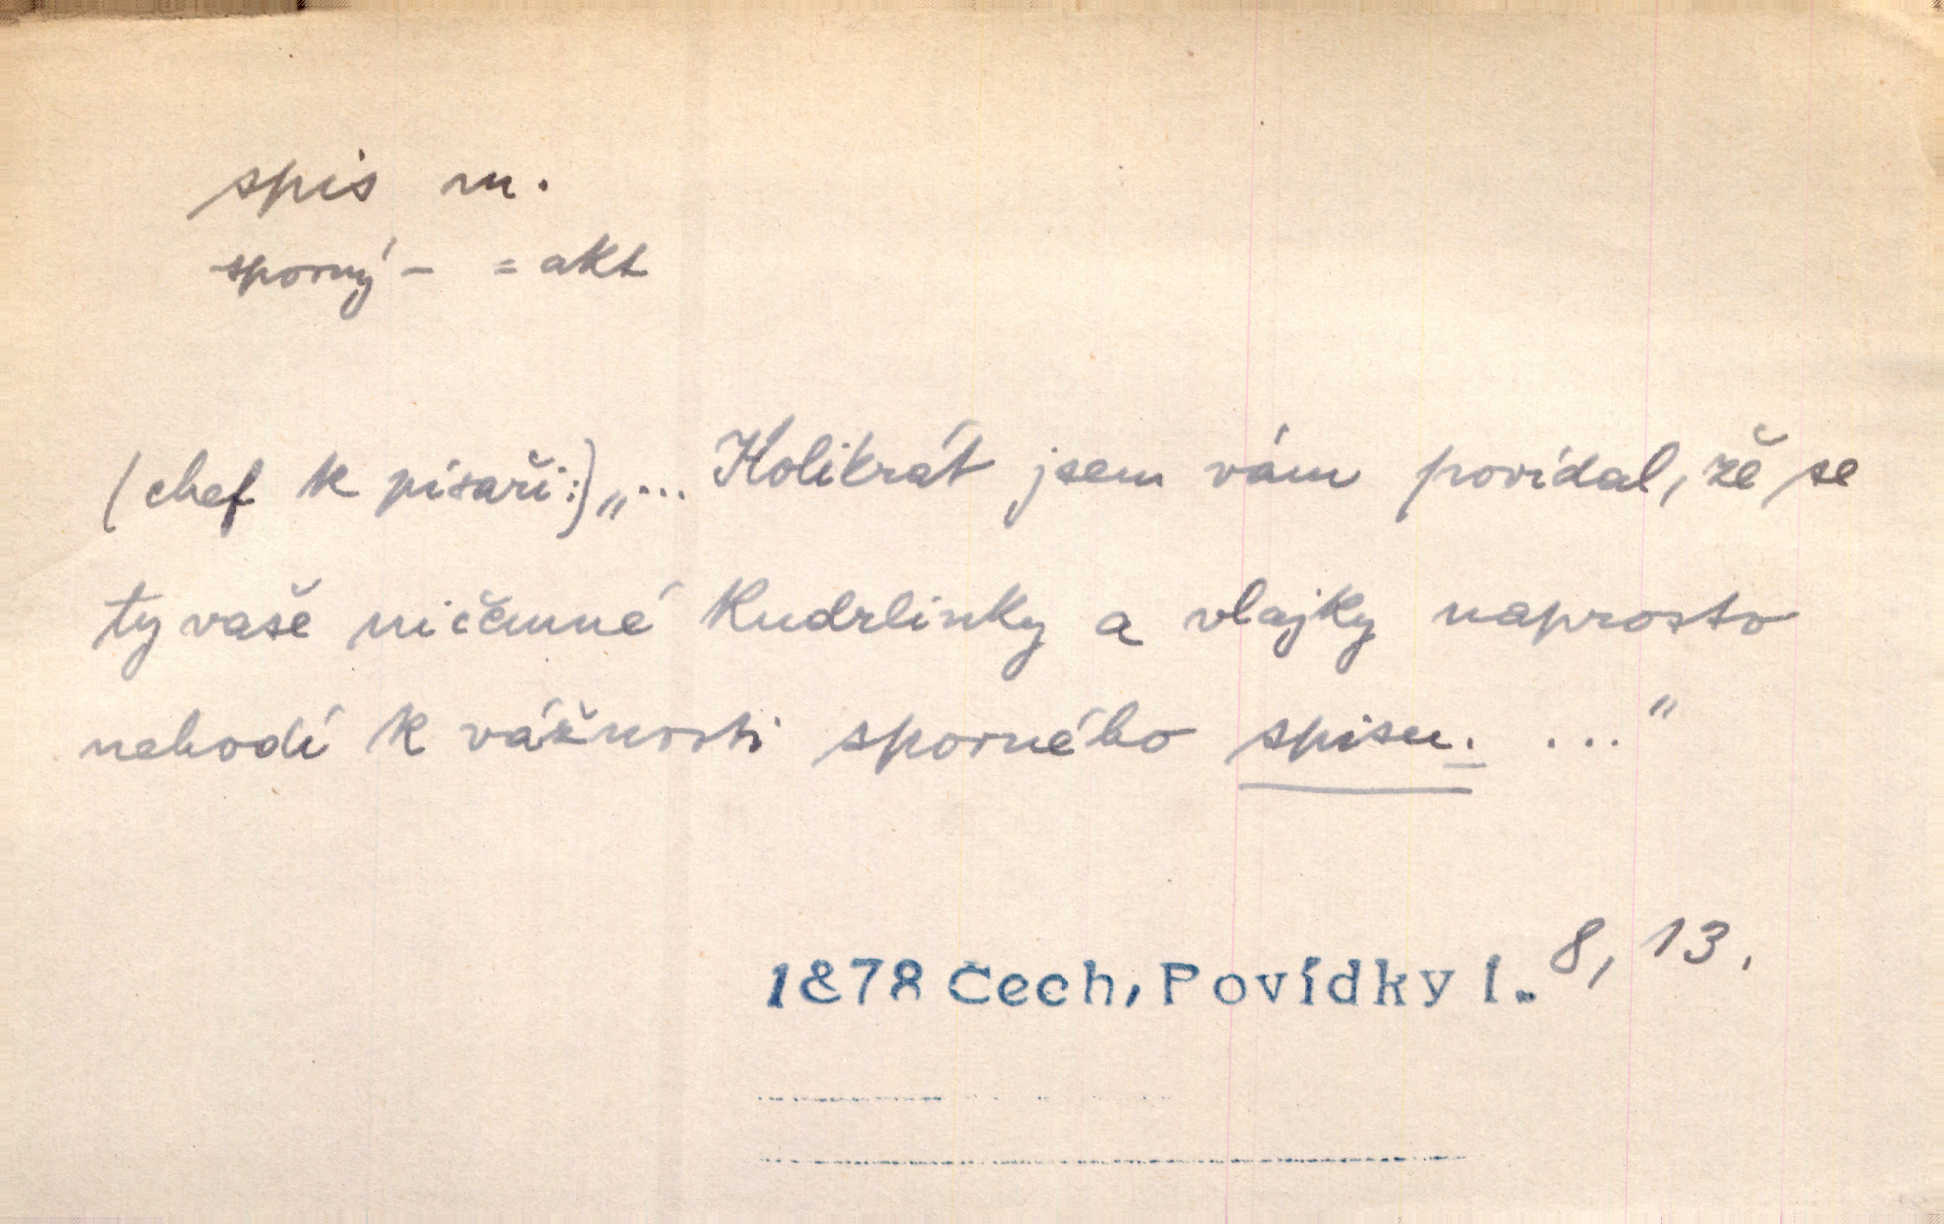 spis m.
sporný – = akt
(chef k písaři:) „... Kolikrát jsem vám povídal, že se
ty vaše ničemné kudrlinky a vlajky naprosto
nehodí k vážnosti sporného spisu. ..."
1878 Čech, Povídky I. 8, 13.